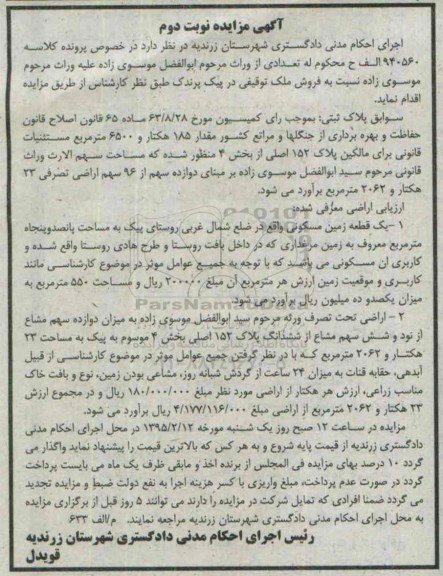 آگهی مزایده نوبت دوم
اجرای احکام مدنی دادگستری شهرستان زرندیه در نظر دارد در خصوص پرونده کلاسه
۹۴۰۵۶۰ الف ح محکوم له تعدادی از وراث مرحوم ابوالفضل موسوی زاده علیه وراث مرحوم
موسوی زاده نسبت به فروش ملک توقیفی در پیک پرندک طبق نظر کارشناس از طریق مزایده
اقدام نماید.
سوابق پلاک ثبتی: بموجب رای کمیسیون مورخ ۶۳/۸/۲۸ ماده ۶۵ قانون اصلاح قانون
حفاظت و بهره برداری از جنگلها و مراتع کشور مقدار ۱۸۵ هکتار و ۶۵۰۰ مترمربع مستثنیات
قانونی برای مالکین پلاک ۱۵۲ اصلی از بخش ۴ منظور شده که مساحت سهم الارث وراث
قانونی مرحوم سید ابوالفضل موسوی زاده بر مبنای دوازده سهم از ۹۶ سهم اراضی تصرفی ۲۳
هکتار و ۲۰۶۲ مترمربع برآورد می شود.
ارزیابی اراضی معرفی شده:
۱ -یک قطعه زمین مسکونی واقع در ضلع شمال غربی روستای پیک به مساحت پانصدوپنجاه
مترمربع معروف به زمین مرغداری که در داخل بافت روستا و طرح هادی روستا واقع شده و
کاربری آن مسکونی می باشد که با توجه به جمیع عوامل موثر در موضوع کارشناسی مانند
کاربری و موقعیت زمین ارزش هر مترمربع آن مبلغ ۲۰۰۰۰۰ ریال و مساحت ۵۵۰ مترمربع به
میزان یکصدو ده میلیون ریال برآورد می شود.
۲ - اراضی تحت تصرف ورثه مرحوم سید ابوالفضل موسوی زاده به میزان دوازده سهم مشاع
از نود و شش سهم مشاع از ششدانگ پلاک ۱۵۲ اصلی بخش ۴ موسوم به پیک به مساحت ۲۳
هکتار و ۲۰۶۲ مترمربع که با در نظر گرفتن جمیع عوامل موثر در موضوع کارشناسی از قبیل
آبدهی، حقابه قنات به میزان ۲۴ ساعت از گردش شبانه روز، مشاعی بودن زمین، نوع و بافت خاک
مناسب زراعی، ارزش هر هکتار از اراضی مورد نظر مبلغ ۱۸۰/۰۰۰/۰۰۰ ریال و در مجموع ارزش
۲۳ هکتار و ۲۰۶۲ مترمربع از اراضی مبلغ ۴/۱۷۷/۱۱۶/۰۰۰ ریال برآورد می شود.
مزایده در ساعت ۱۲ صبح روز یک شنبه مورخه ۱۳۹۵/۲/۱۲ در محل اجرای احکام مدنی
دادگستری زرندیه از قیمت پایه شروع و به هر کس که بالاترین قیمت را پیشنهاد نماید واگذار می
گردد ۱۰ درصد بهای مزایده فی المجلس از برنده اخذ و مابقی ظرف یک ماه می بایست پرداخت
گردد در صورت عدم پرداخت، مبلغ واریزی با کسر هزینه اجرا به نفع دولت ضبط و مزایده تجدید
می گردد ضمنا افرادی که تمایل شرکت در مزایده را دارند می توانند ۵ روز قبل از برگزاری مزایده
به محل اجرای احکام مدنی دادگستری شهرستان زرندیه مراجعه نمایند. م/الف ۶۳۳
رئیس اجرای احکام مدنی دادگستری شهرستان زرندیه
قویدل